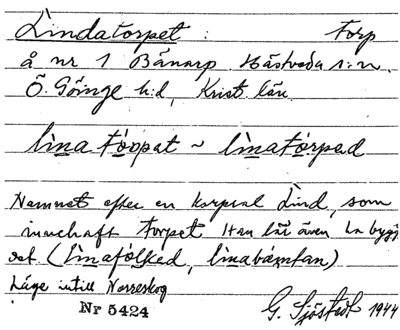 Lindatorpet : Torp
å nr 1 Bånarp Hästveda s:n.
Ö. Göinge h:d, Krist. län.
lìnatórpat ~ lìnatórpad
Namnet efter en korpral Lind, som
innehaft torpet Han lär även ha bygt
det (lìnafólked, lìnabárntan)
Läge intill Norreskog
Nr 5424 G. Sjöstedt 1944